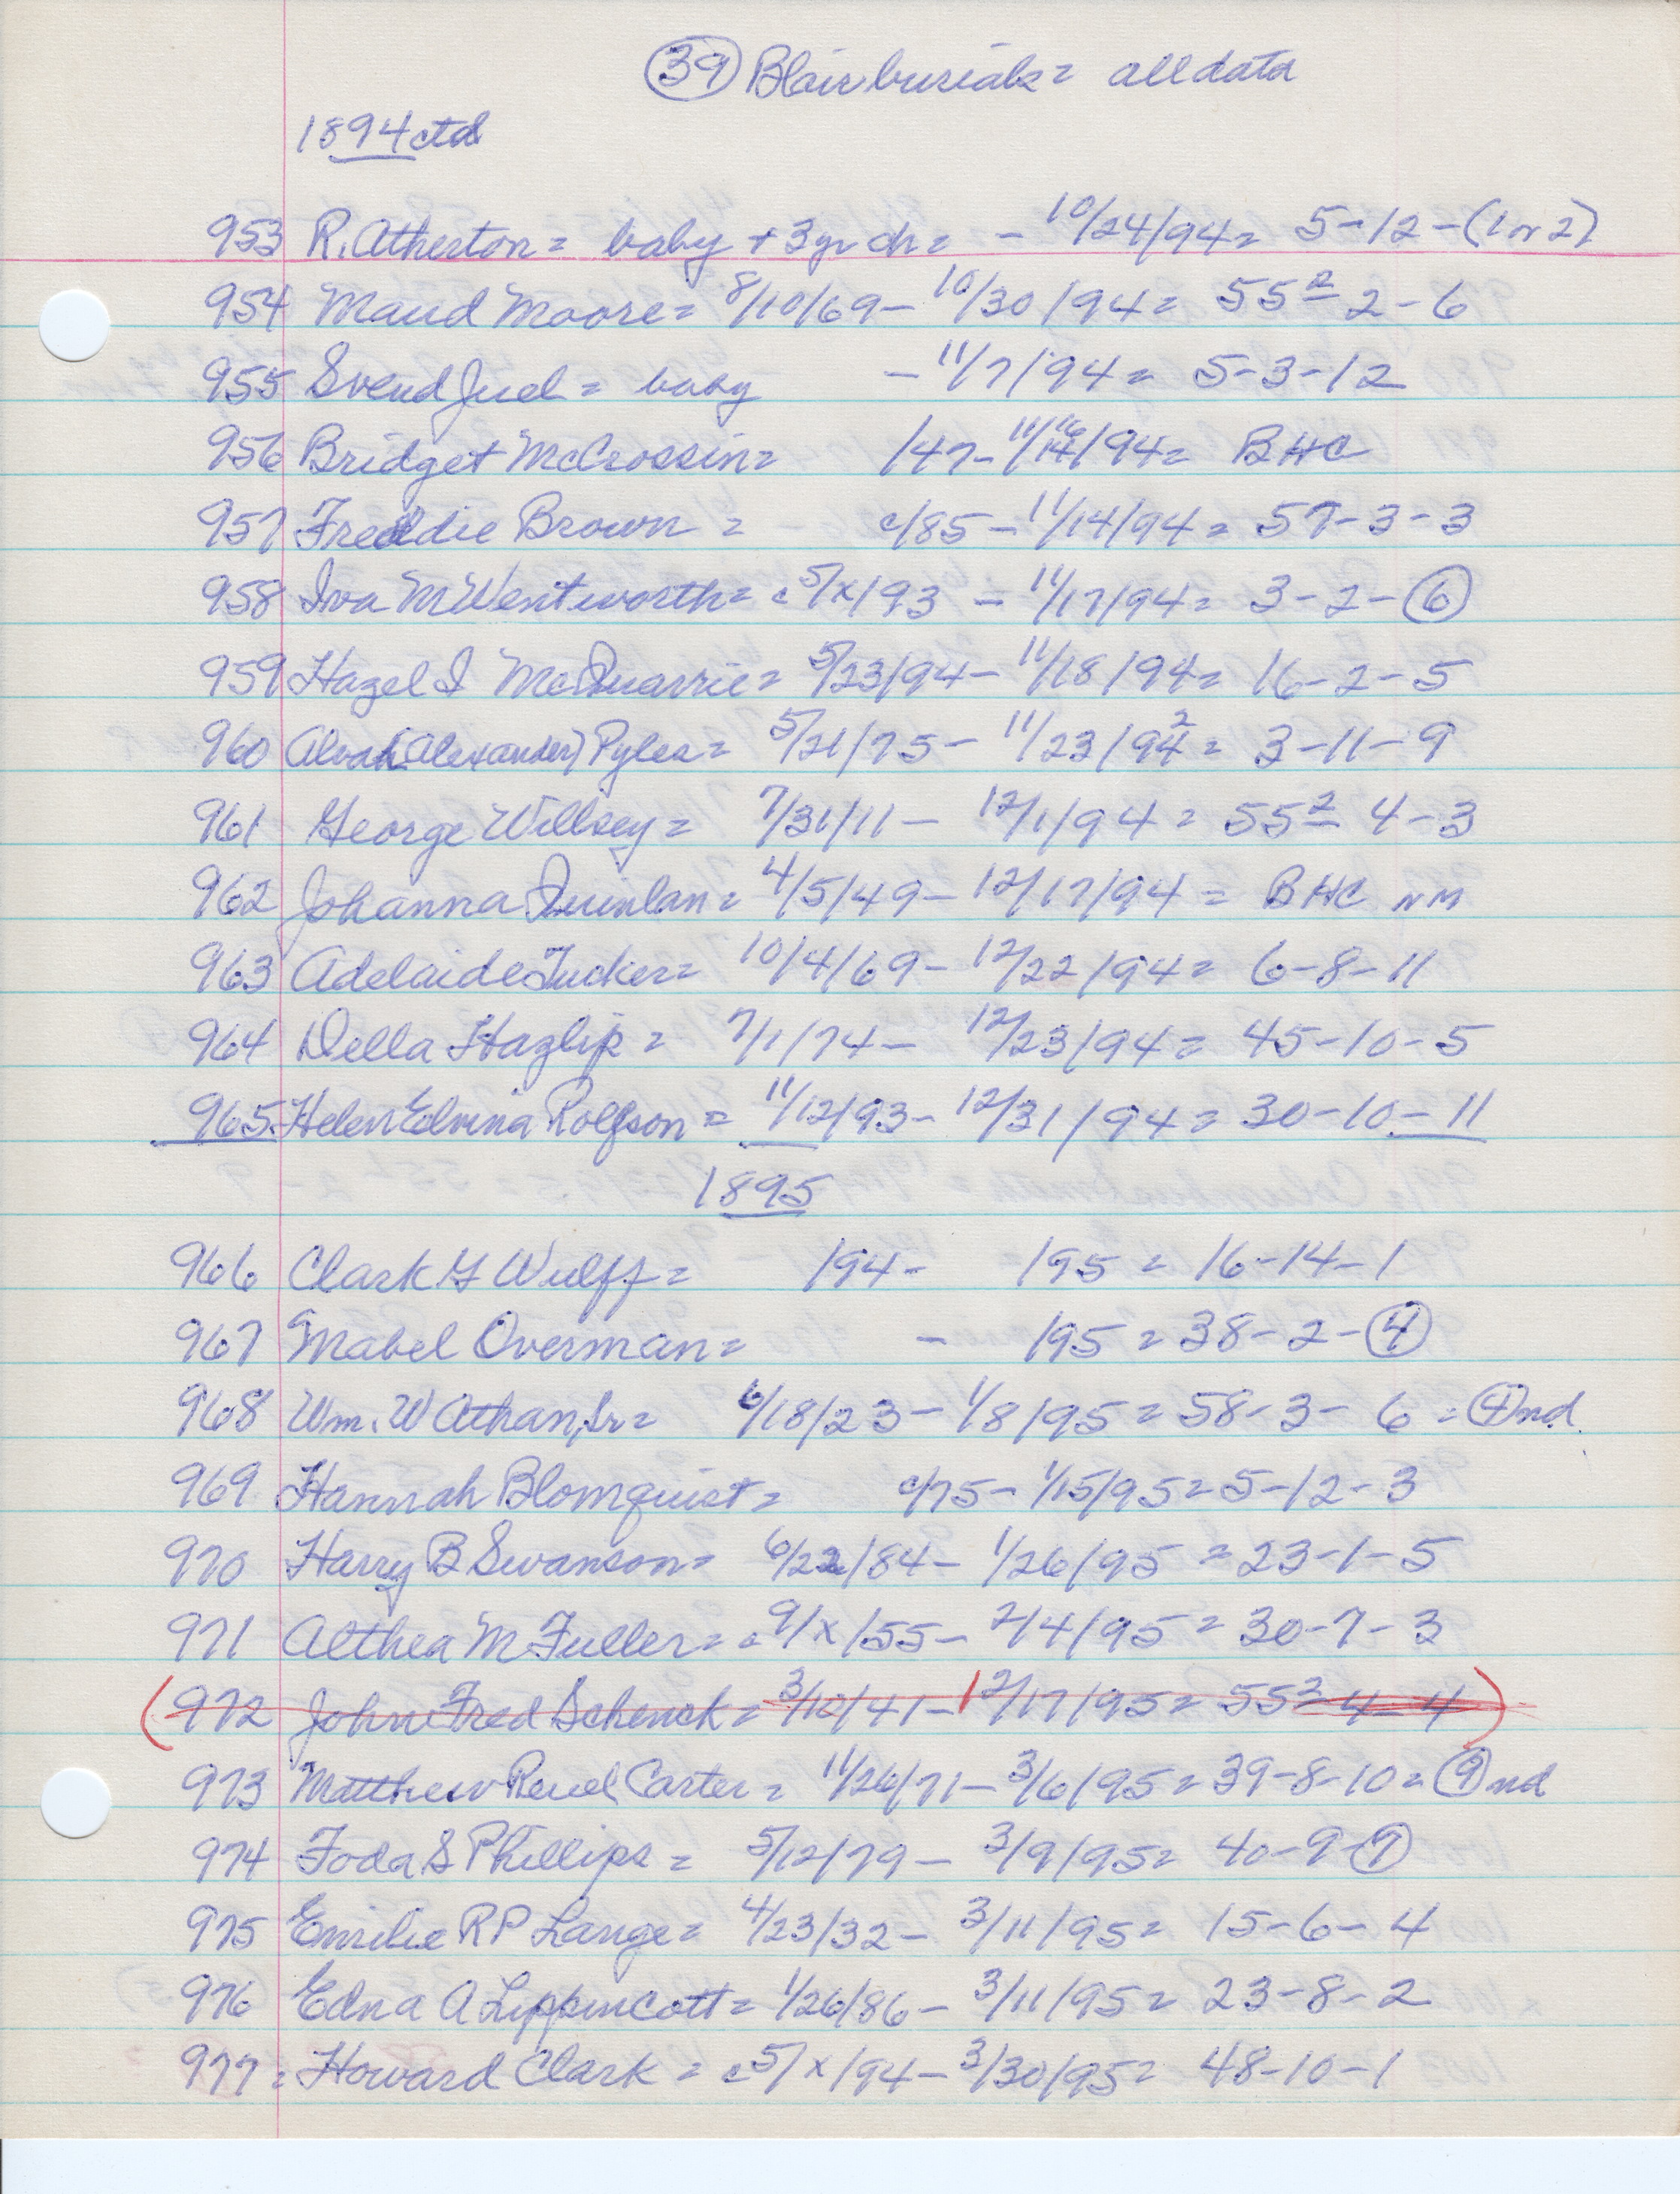 (39) Blair burials = all data
1894 ctd
953 R. Atherton = baby + 3 yr ch = - 10/24/94 = 5-12-(1 or 2)
954 Maud Moore = 8/10/69 - 10/30/94 = 55² - 2-6
955 Svend Juel = baby - 11/7/94 = 5-3-12
956 Bridget McCrossin = /47 - 11/14/94 = BHC
957 Freddie Brown = c/85 - 11/14/94 = 57-3-3
958 Iva M Wentworth = c 5/x/93 - 11/17/94 = 3-2-(6)
959 Hazel I McQuarrie = 5/23/94 - 11/18/94 = 16-2-5
960 Alvah (Alexander) Pyles = 5/21/75 - 11/23/94 = 3-11-9
961 George Willsey = 7/31/11 - 12/1/94 = 55² - 4-3
962 Johanna Quinlan = 4/5/49 - 12/17/94 = BHC NM
963 Adelaide Tucker = 10/4/69 - 12/22/94 = 6-8-11
964 Della Hazlip = 7/1/74 - 12/23/94 = 45-10-5
965 Helen Edvina Rolfson = 11/12/93 - 12/31/94 = 30-10-11
1895
966 Clark G Wulff = /94 - /95 = 16-14-1
967 Mabel Overman = - /95 = 38-2-(4)
968 Wm. W Athan, Sr = 6/18/23 - 1/8/95 = 58-3-6 = (4) nd.
969 Hannah Blomquist = c/75 - 1/15/95 = 5-12-3
970 Harry B Swanson = 6/22/84 - 1/26/95 = 23-1-5
971 Althea M Fuller = c 9/x/55 - 2/4/95 = 30-7-3
(972 John Fred Schenck = 3/10/41 - 12/17/95 = 55² - 4-4)
973 Matthew Reuel Carter = 11/26/71 - 3/6/95 = 39-8-10 = (9) nd
974 Foda S Phillips = 5/12/79 - 3/9/95 = 40-9-(9)
975 Emilie R P Lange = 4/23/32 - 3/11/95 = 15-6-4
976 Edna A Lippincott = 1/26/86 - 3/11/95 = 23-8-2
977 = Howard Clark = c 5/x/94 - 3/30/95 = 48-10-1